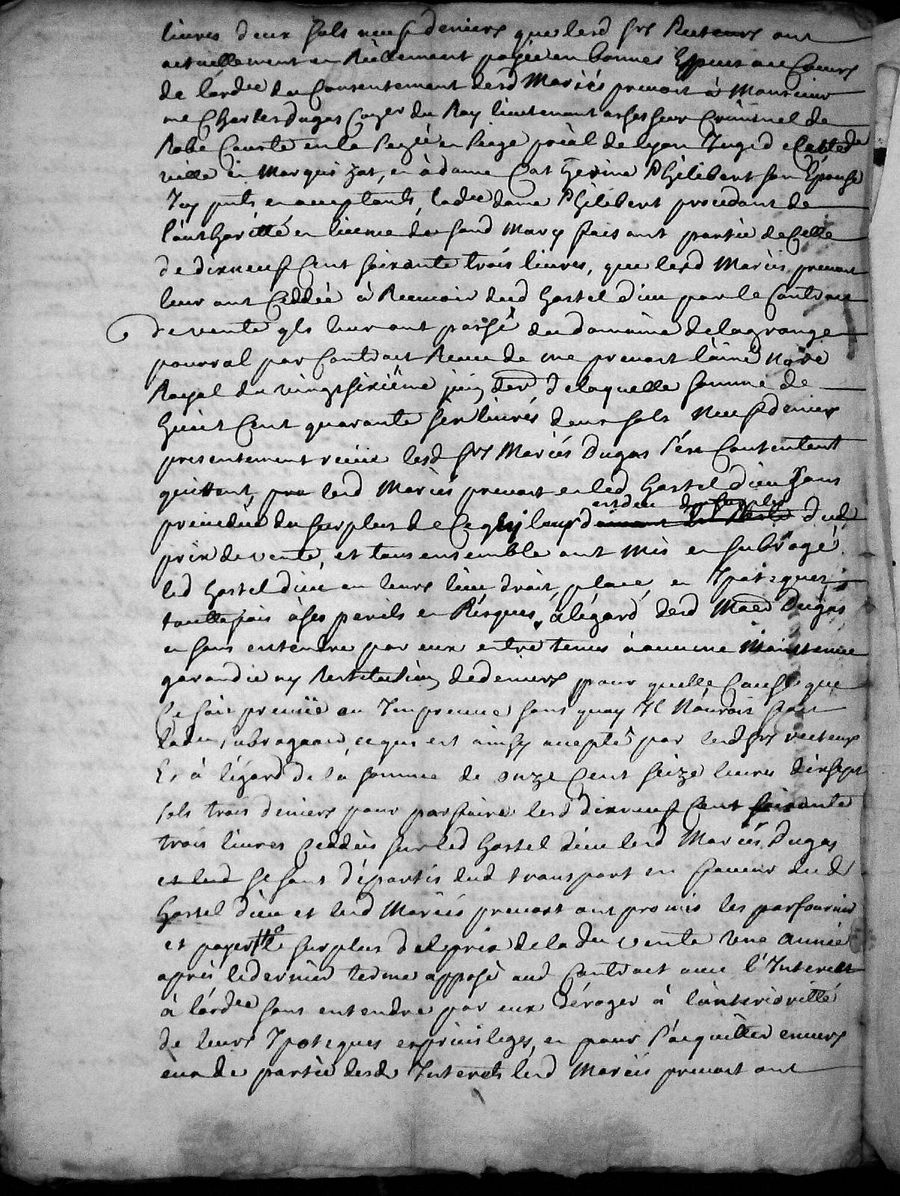 livres deux sols neuf deniers que lesd srs Recteurs ont
actuellement et Réellement payée en bonnes Espèces au Cours
de lordce du Consentement desd Mariés prevost à Monsieur
me Charles Dugas Coner du Roy lieutenant assesseur Criminel de
Robe Courte en la en siege pñal de lyon Juge d
ville et Marquizat, et à dame Catherine Philibert son Épouse
Icy pnts et acceptants, ladce dame Philibert procedant de
l'authoritté et licence dud sond Mary faisant partie de Celle
de dixneuf Cent soixante trois livres, que lesd Mariés prevost
leur ont Ceddée à Recevoir dud hostel dieu par le Contract
de vente qls leur ont passé du domaine de lagrange
pourral par Contract Receu de me prevost l'ainé Nore
Royal du vingt sixiême juin der de laquelle somme de
huict Cent quarante six livres deux sols Neuf deniers
presentement reçüe lesd srs Mariés Dugas s'en Contentent
quittent, lesd Mariés prevost et led hostel dieu sans
préiudice du surplus de Ce qui leur est deu dud
prix de vente, et tous ensemble ont mis et subrogé
led hostel dieu en leurs lieu droit, place, et Ipoteques
touttefois à ses perils et Risques, à l'égard desd Mariés Dugas
et sans entendre par eux estre tenus à aucune Maintenue
garandie ny Restitution de deniers pour quelle Cause que
Ce soit preveüe ou Impreveue sans quoy Il N'auroit fait
lad subrogaõn, ce qui est ainsy accepté par lesd srs recteurs
Et à l'égard de la somme de onze Cent seize livres dixsept
sols trois deniers pour parfaire lesd dixneuf Cent soixante
trois livres Ceddées sur led hostel dieu lesd Mariés Dugas
se sont départis dud transport en faveur dud
hostel dieu et lesd Mariés prevost ont promis les parfournir
et payer le surplus del prix de lade vente une année
après le dernier terme apposé aud Contract avec l'Interest
à lordce sans entendre par eux déroger à l'anterioritté
de leurs Ipoteques et privileges, et pour s'acquitter envers
eux de partie desd Interets lesd Mariés prevost ont